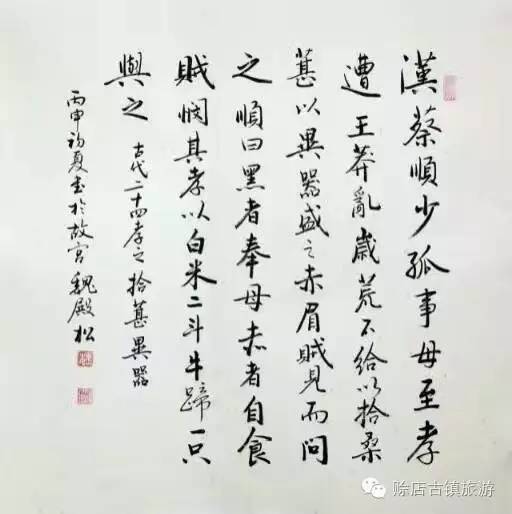 漢蔡順少孤事母至孝
遭王莽亂歲荒不給以拾桑
葚以異器盛之赤眉賊見而問
之順曰黑者奉母赤者自食
賊憫其孝以白米二斗牛蹄一只
與之
古代二十四孝之拾葚異器
丙申初夏書於故宮魏殿松
赊店古镇旅游